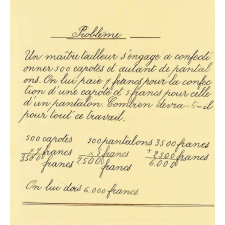 Problème
Un maître tailleur s'engage a confecti
onner 500 capotes et autant de pantal
ons. On lui paie 7 francs pour la confec
tion d'une capote et 5 francs pour celle
d'un pantalon. Combien devra-t-il
pour tout ce travail.
500 capotes 500 pantalons 3500 francs
x 7 francs x 5 francs + 2500 francs
3500 francs 2500 francs 6.000
On lui dois 6.000 francs